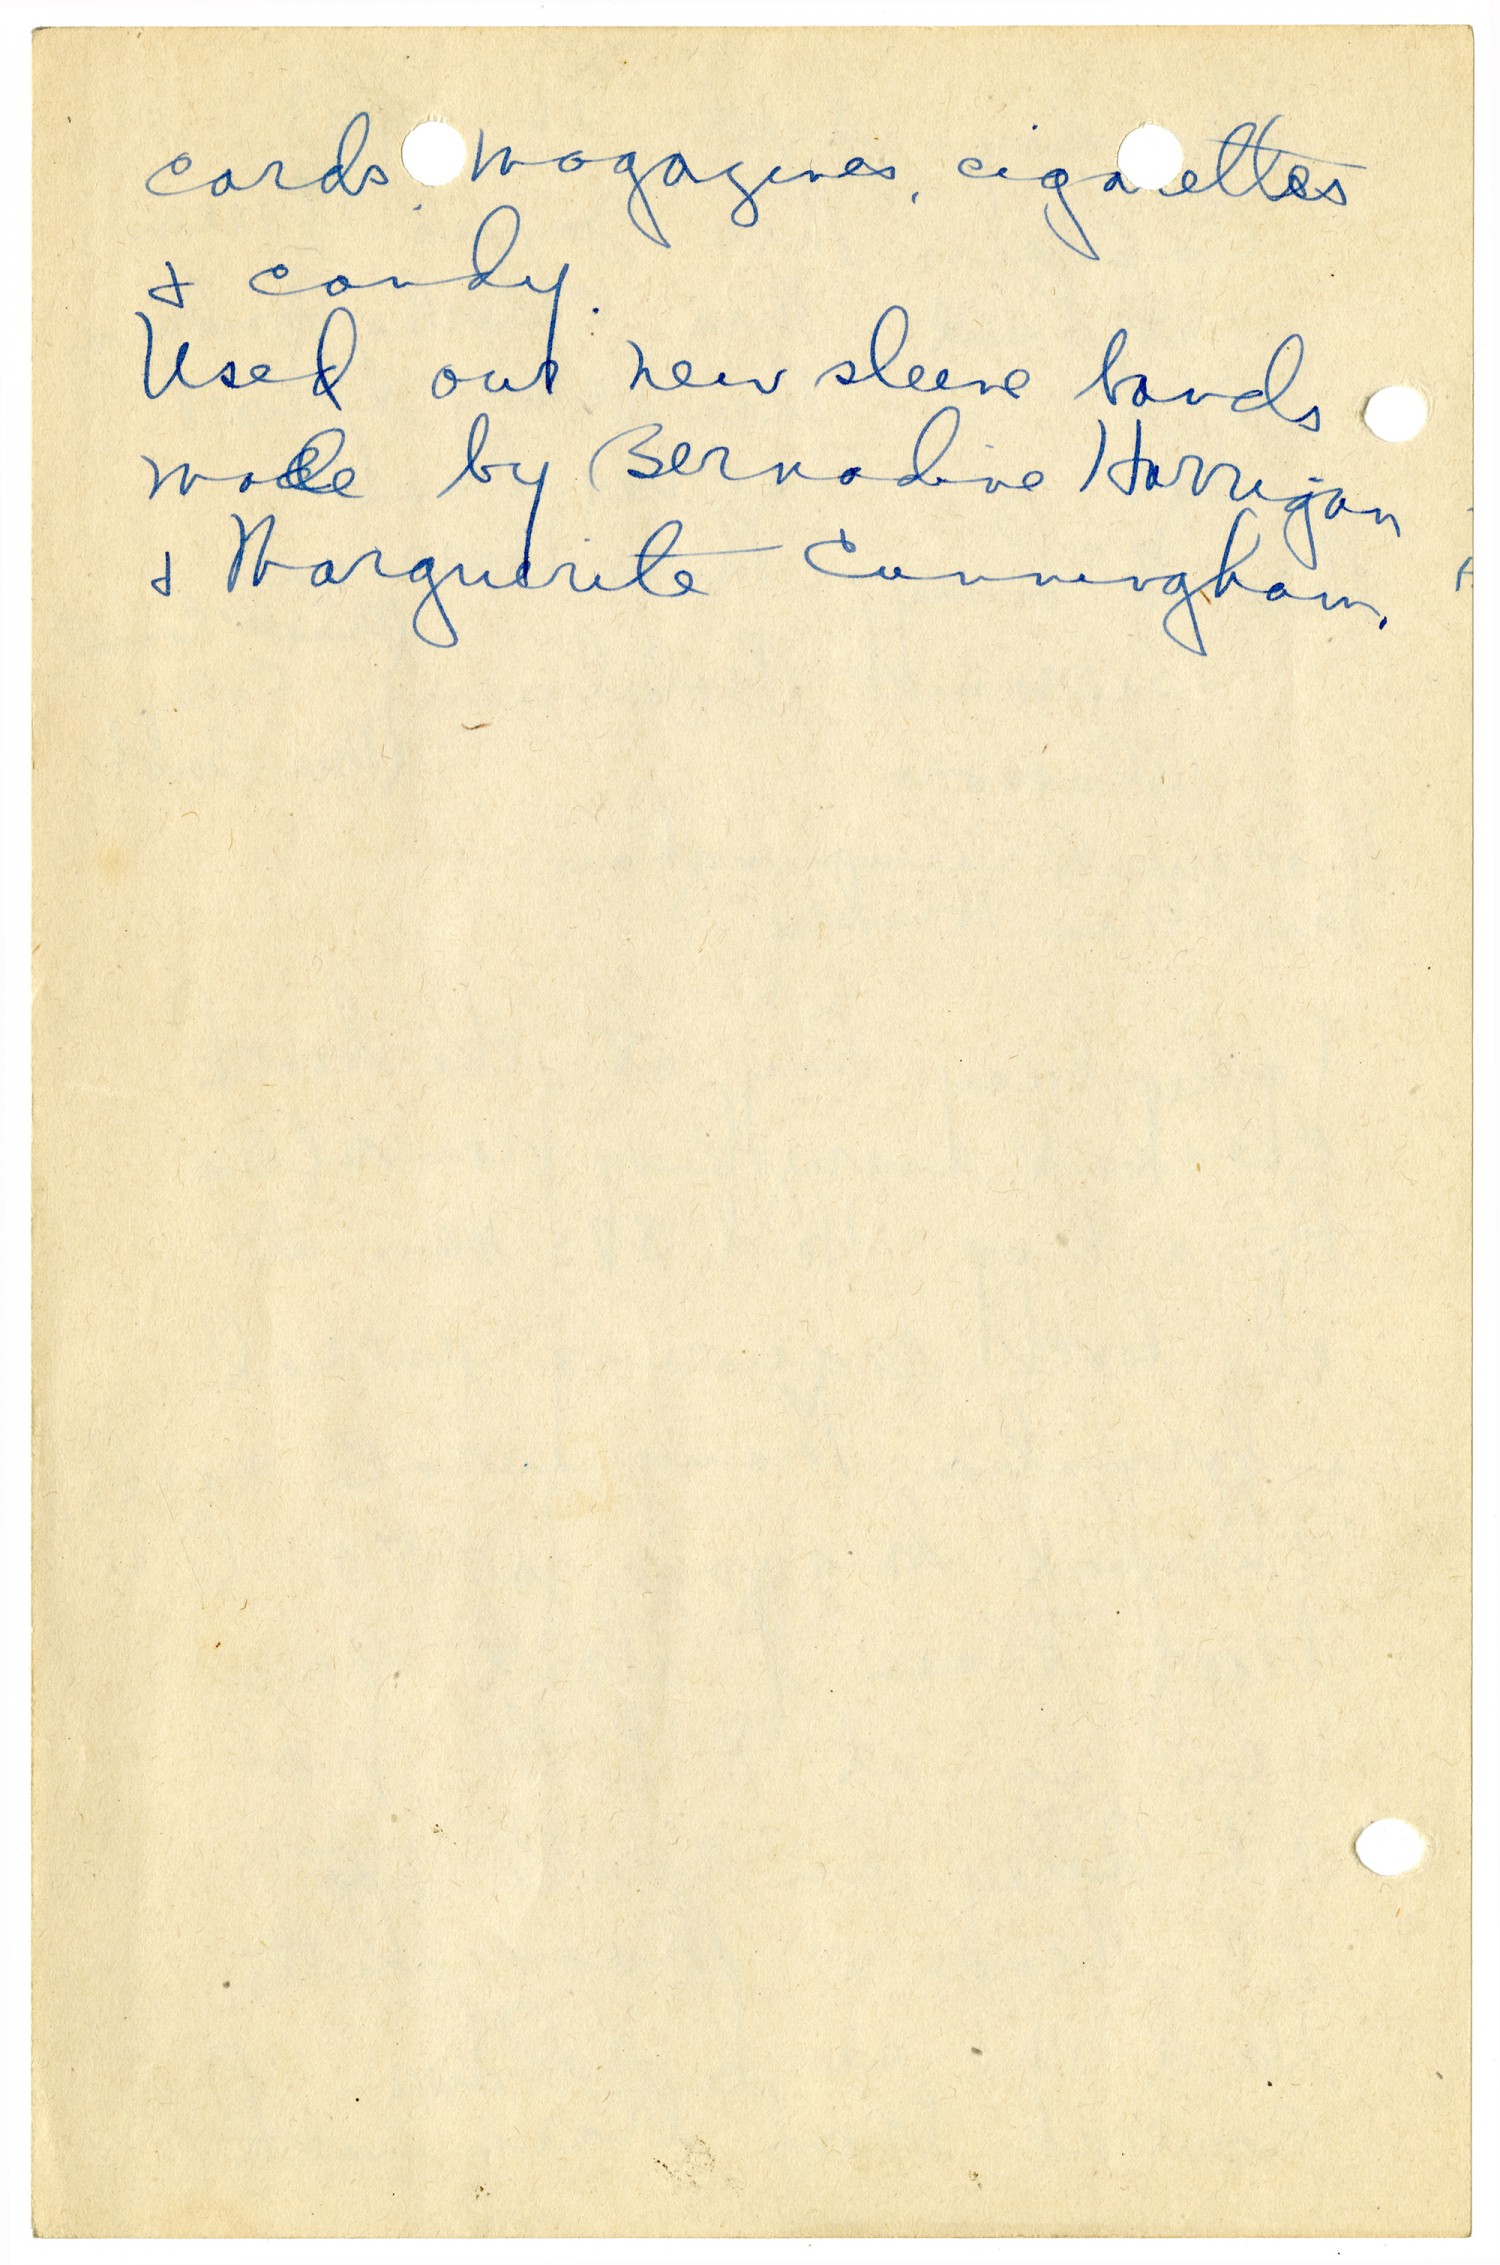 cards, magazines, cigarettes
& candy.
Used our new sleeve bands
made by Bernadine Harrigan
& Marguerite Cunningham.